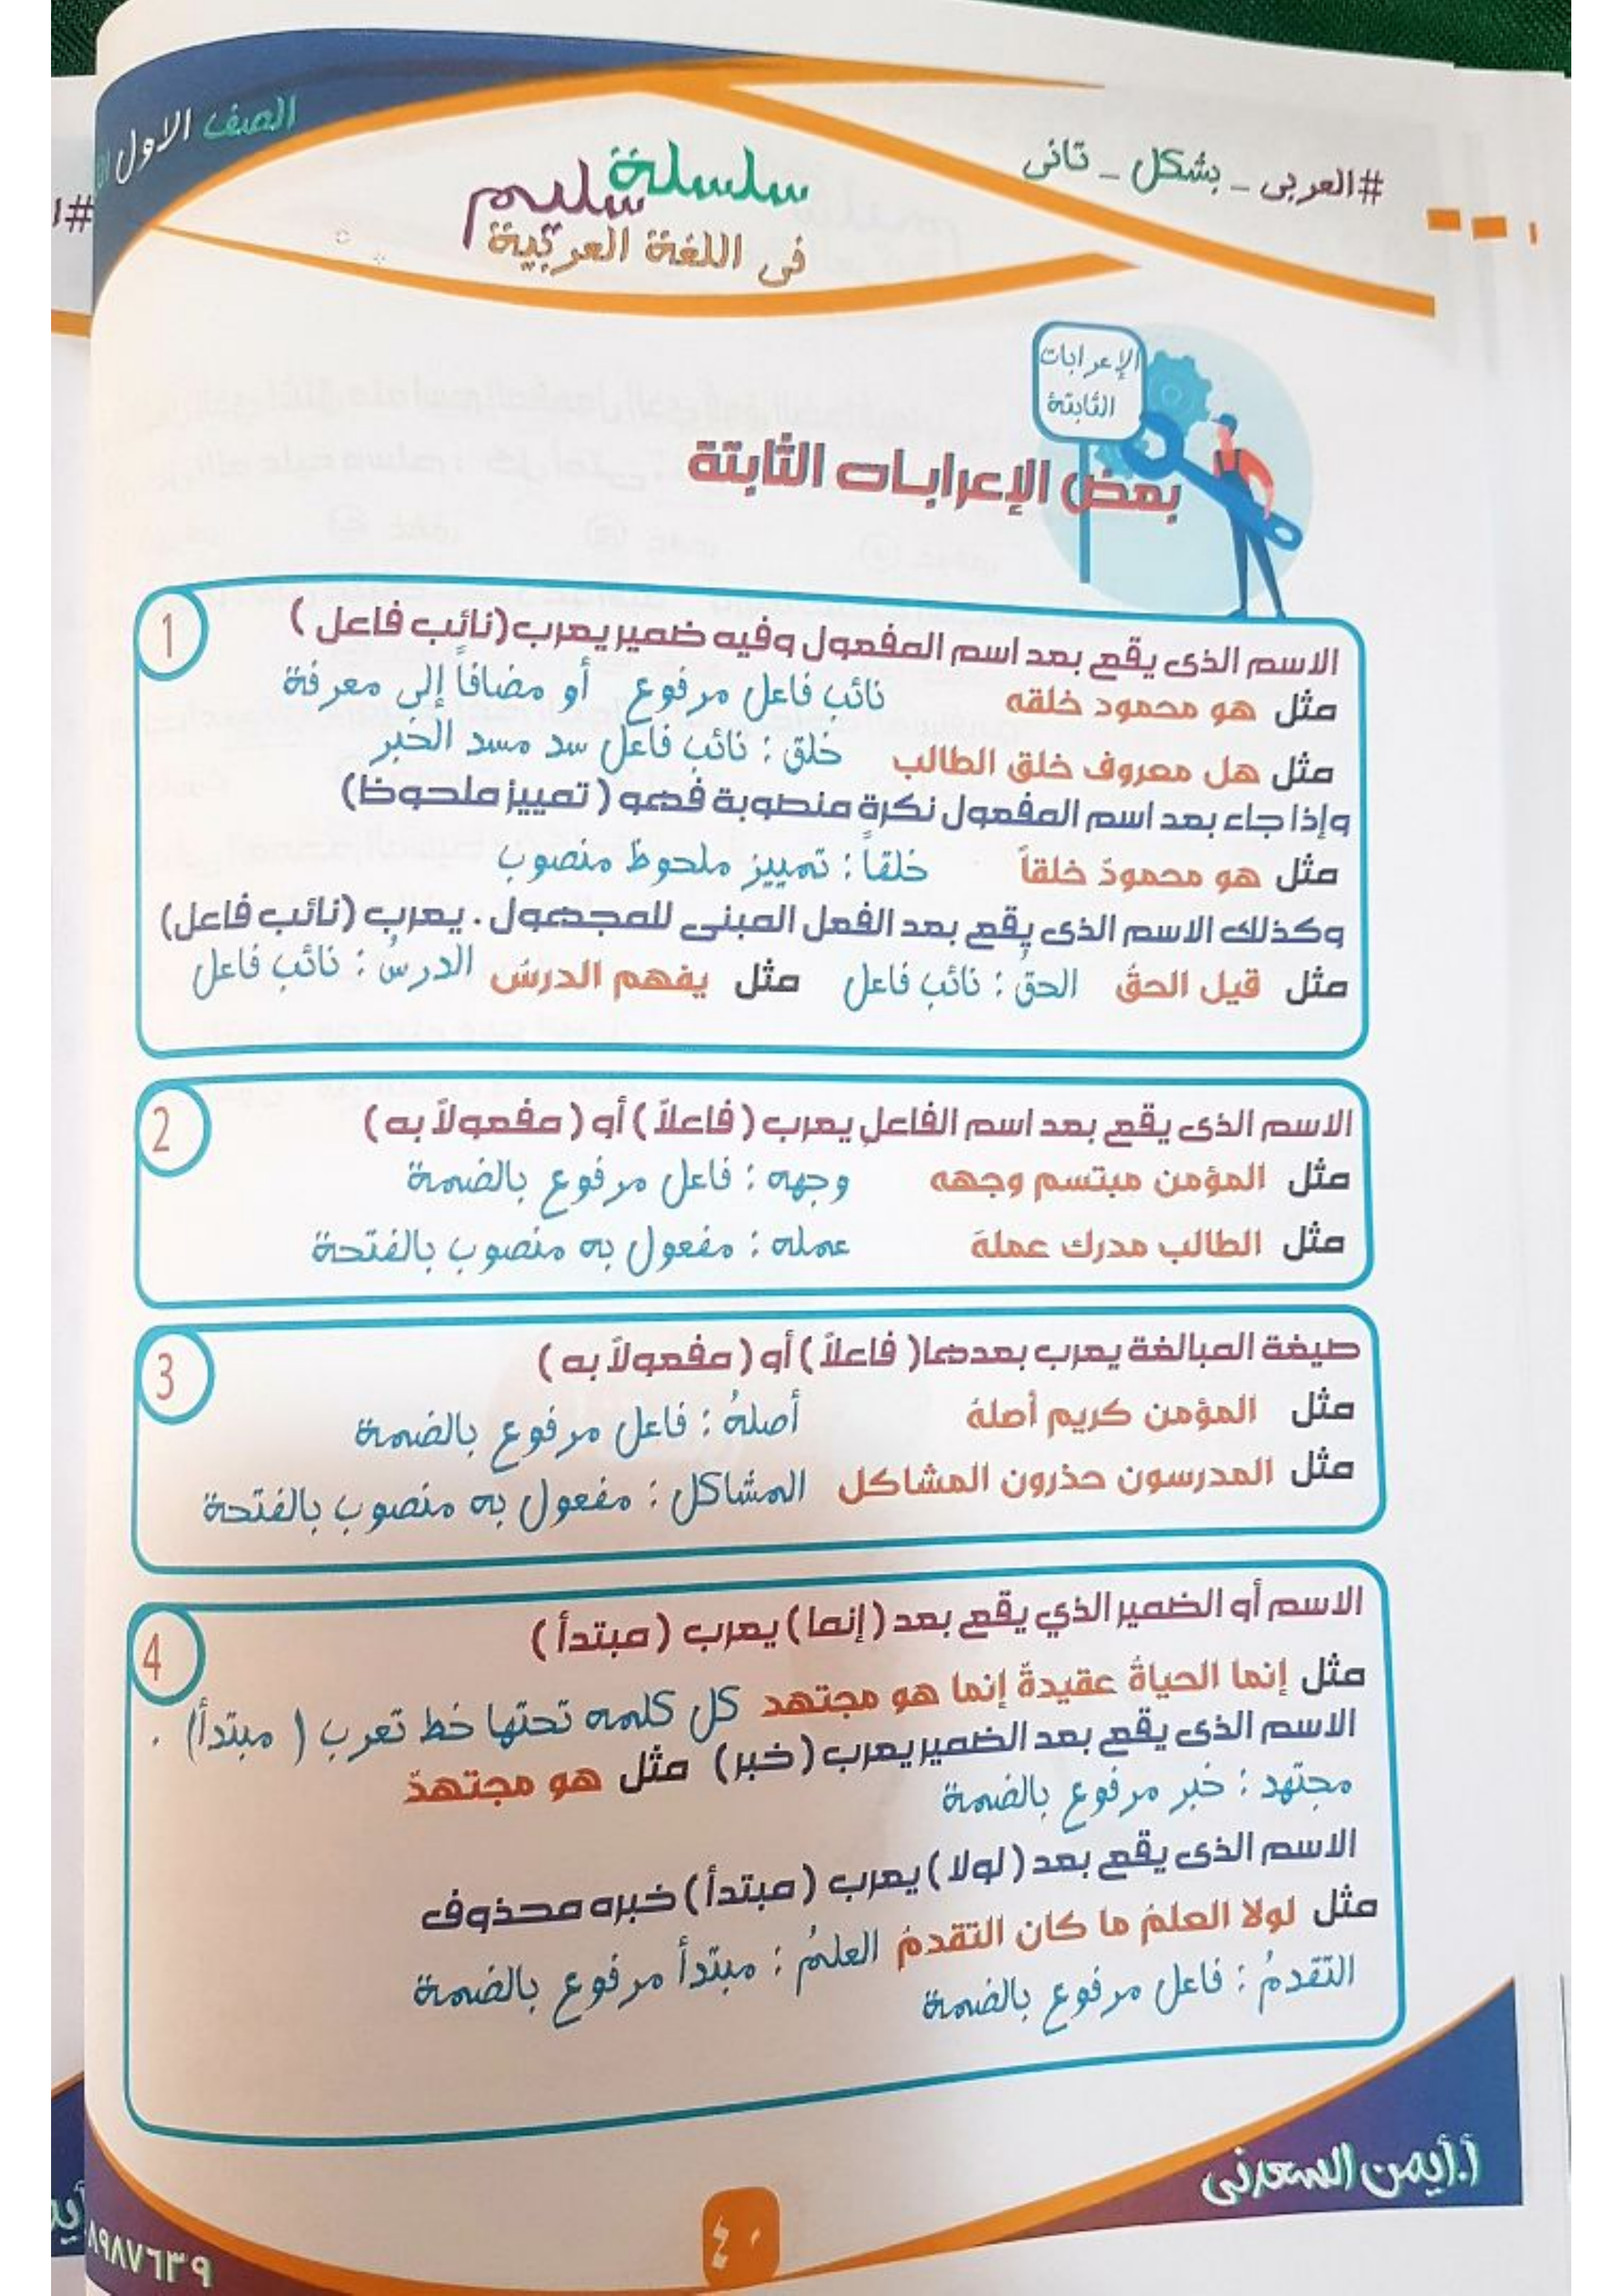 الصف الاول
#العربى _ بشكل _ تانى
سلسلة سليم
فى اللغة العربية
الإعرابات
الثابتة
بعض الإعرابات الثابتة
1
الاسم الذى يقع بعد اسم المفعول وفيه ضمير يعرب (نائب فاعل )
مثل هو محمود خلقه نائب فاعل مرفوع أو مضافاً إلى معرفة
مثل هل معروف خلق الطالب خلق : نائب فاعل سد مسد الخبر
وإذا جاء بعد اسم المفعول نكرة منصوبة فهو ( تمييز ملحوظ)
مثل هو محمودٌ خلقاً خلقاً : تمييز ملحوظ منصوب
وكذلك الاسم الذى يقع بعد الفعل المبنى للمجهول . يعرب (نائب فاعل)
مثل قيل الحقُ الحقُ : نائب فاعل مثل يفهم الدرسُ الدرسُ : نائب فاعل
2
الاسم الذى يقع بعد اسم الفاعل يعرب ( فاعلاً ) أو ( مفعولاً به )
مثل المؤمن مبتسم وجهه وجهه : فاعل مرفوع بالضمة
مثل الطالب مدرك عملهَ عمله : مفعول به منصوب بالفتحة
3
صيغة المبالغة يعرب بعدها( فاعلاً ) أو ( مفعولاً به )
مثل المؤمن كريم أصلهُ أصلهُ : فاعل مرفوع بالضمة
مثل المدرسون حذرون المشاكل المشاكل : مفعول به منصوب بالفتحة
4
الاسم أو الضمير الذي يقع بعد ( إنما ) يعرب ( مبتدأ )
مثل إنما الحياةُ عقيدةٌ إنما هو مجتهد كل كلمه تحتها خط تعرب ( مبتدأ) .
الاسم الذى يقع بعد الضمير يعرب ( خبر ) مثل هو مجتهدٌ
مجتهد : خبر مرفوع بالضمة
الاسم الذى يقع بعد ( لولا ) يعرب ( مبتدأ ) خبره محذوف
مثل لولا العلمُ ما كان التقدمُ العلمُ : مبتدأ مرفوع بالضمة
التقدمُ : فاعل مرفوع بالضمة
أ.أيمن السعدنى
٤٠
٨٩٨٧٦٣٩